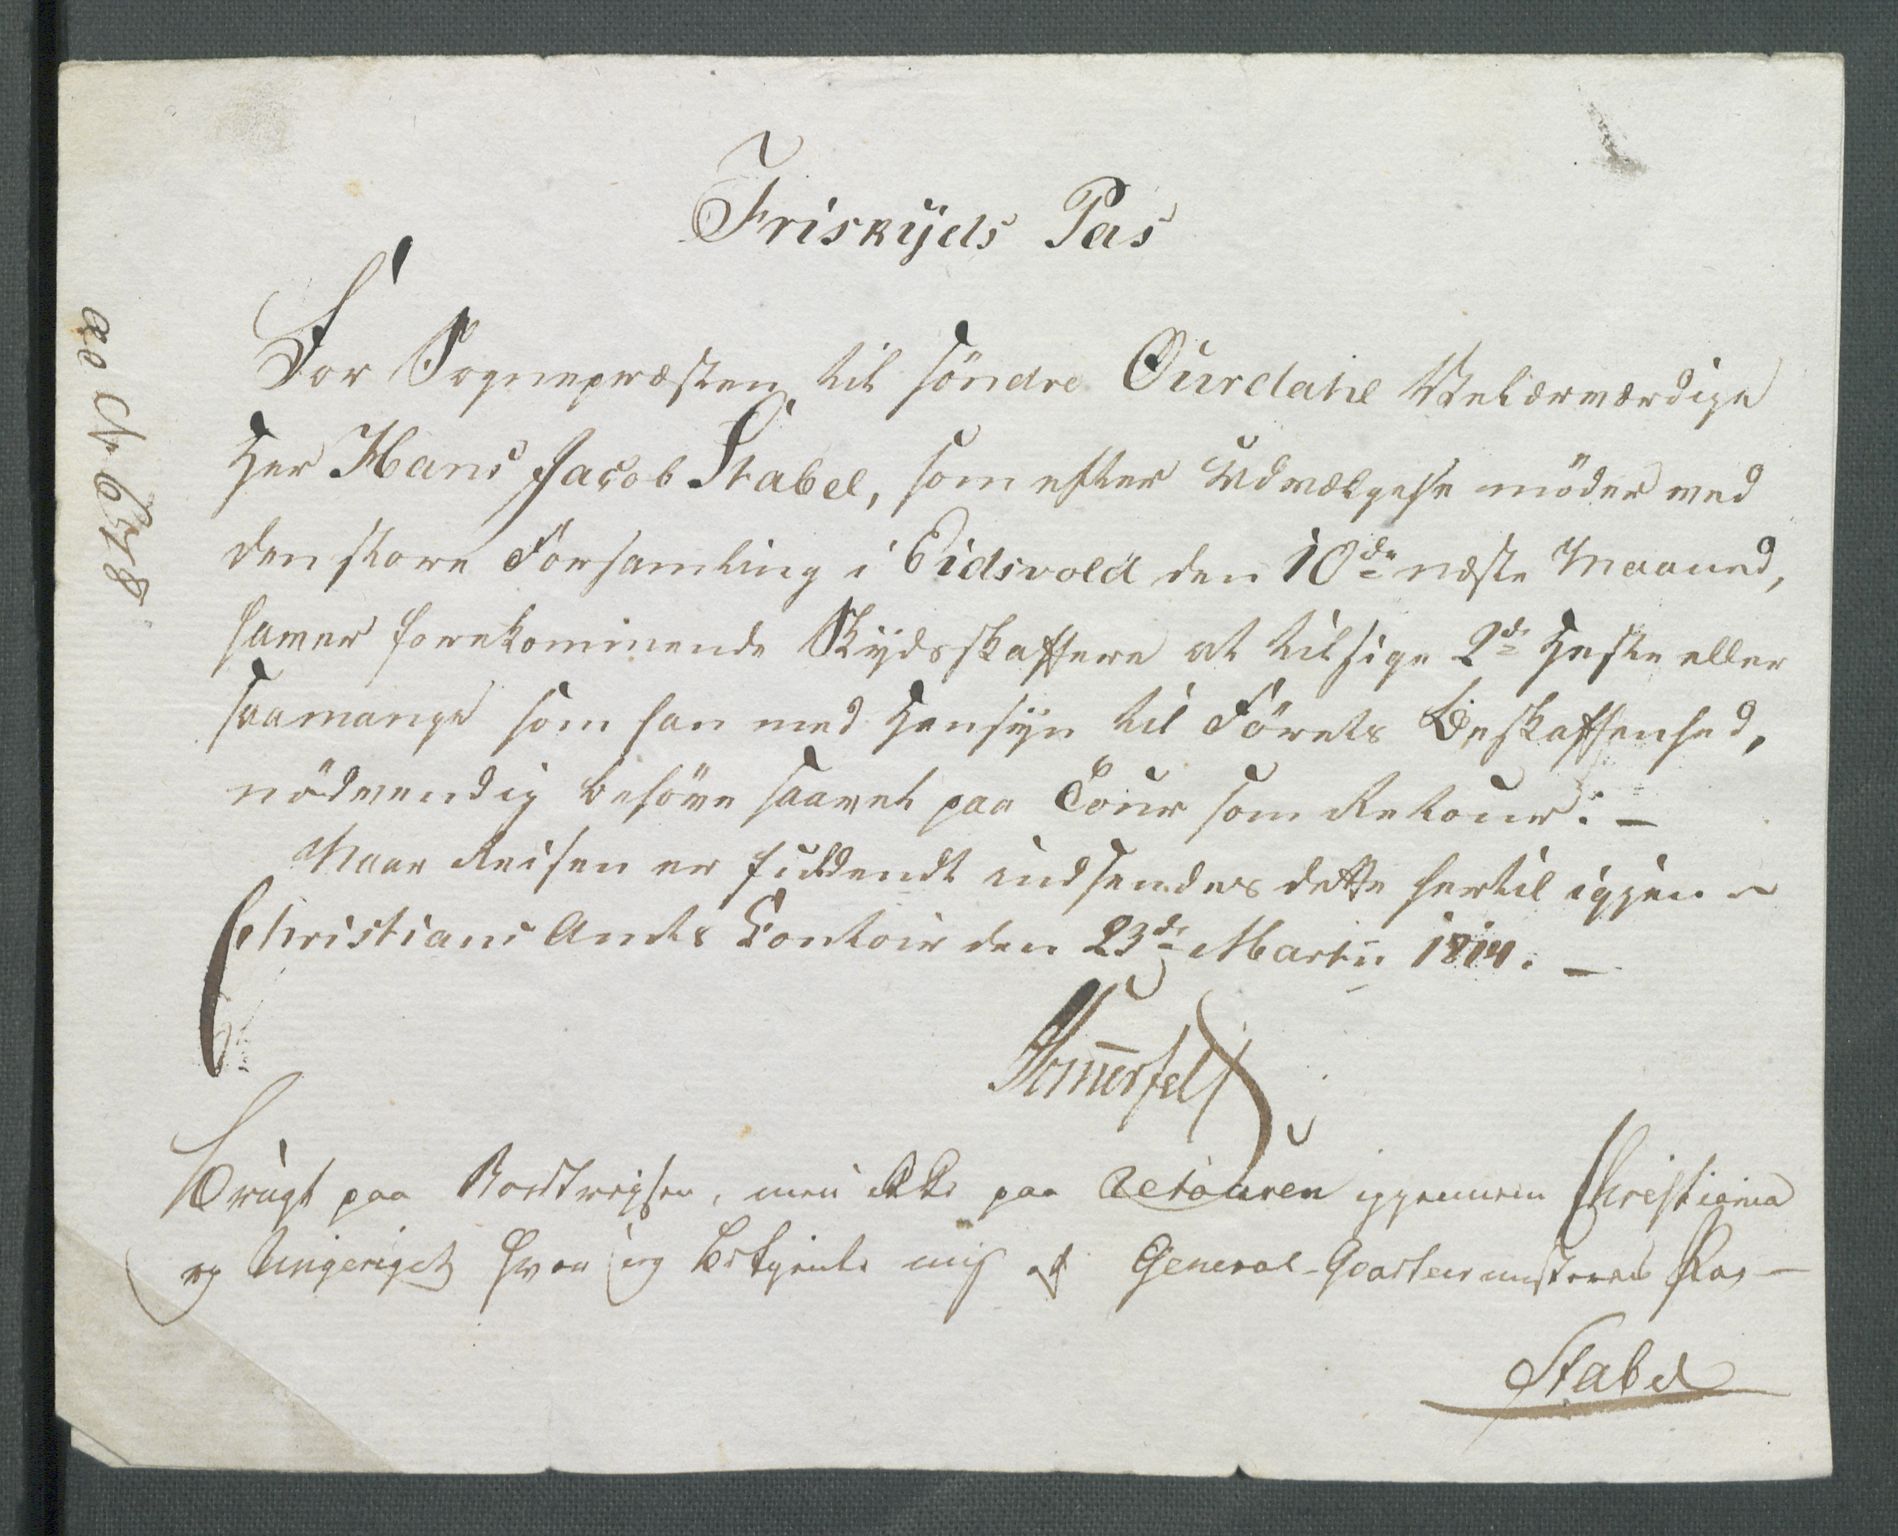 Friskyds Pas
For Sognepræsten til söndre Ourdahl Velærværdige
Her Hans Jacob Stabel, som efter Udvælgelse möder ved
den store Forsamling i Eidsvold den 10de næste Maaned,
haver forekommende Skydsskaffere at tilsige 2de Heste eller
saamange som han med Hensyn til Förets Beskaffenhed,
nödvendig behöve saavel paa Tour som Retour. —
Naar Reisen er fuldendt indsendes dette hertil igjen —
Christians Amts Contoir den 23de Martii 1814. —
Som̄erfelt
Brugt paa Bortreysen, men ikke paa Retouren igjennem Christiania
og Ringeriget hvor jeg betjente mig af General-Qvarteermesterens Pas —
Stabel
ad No 678